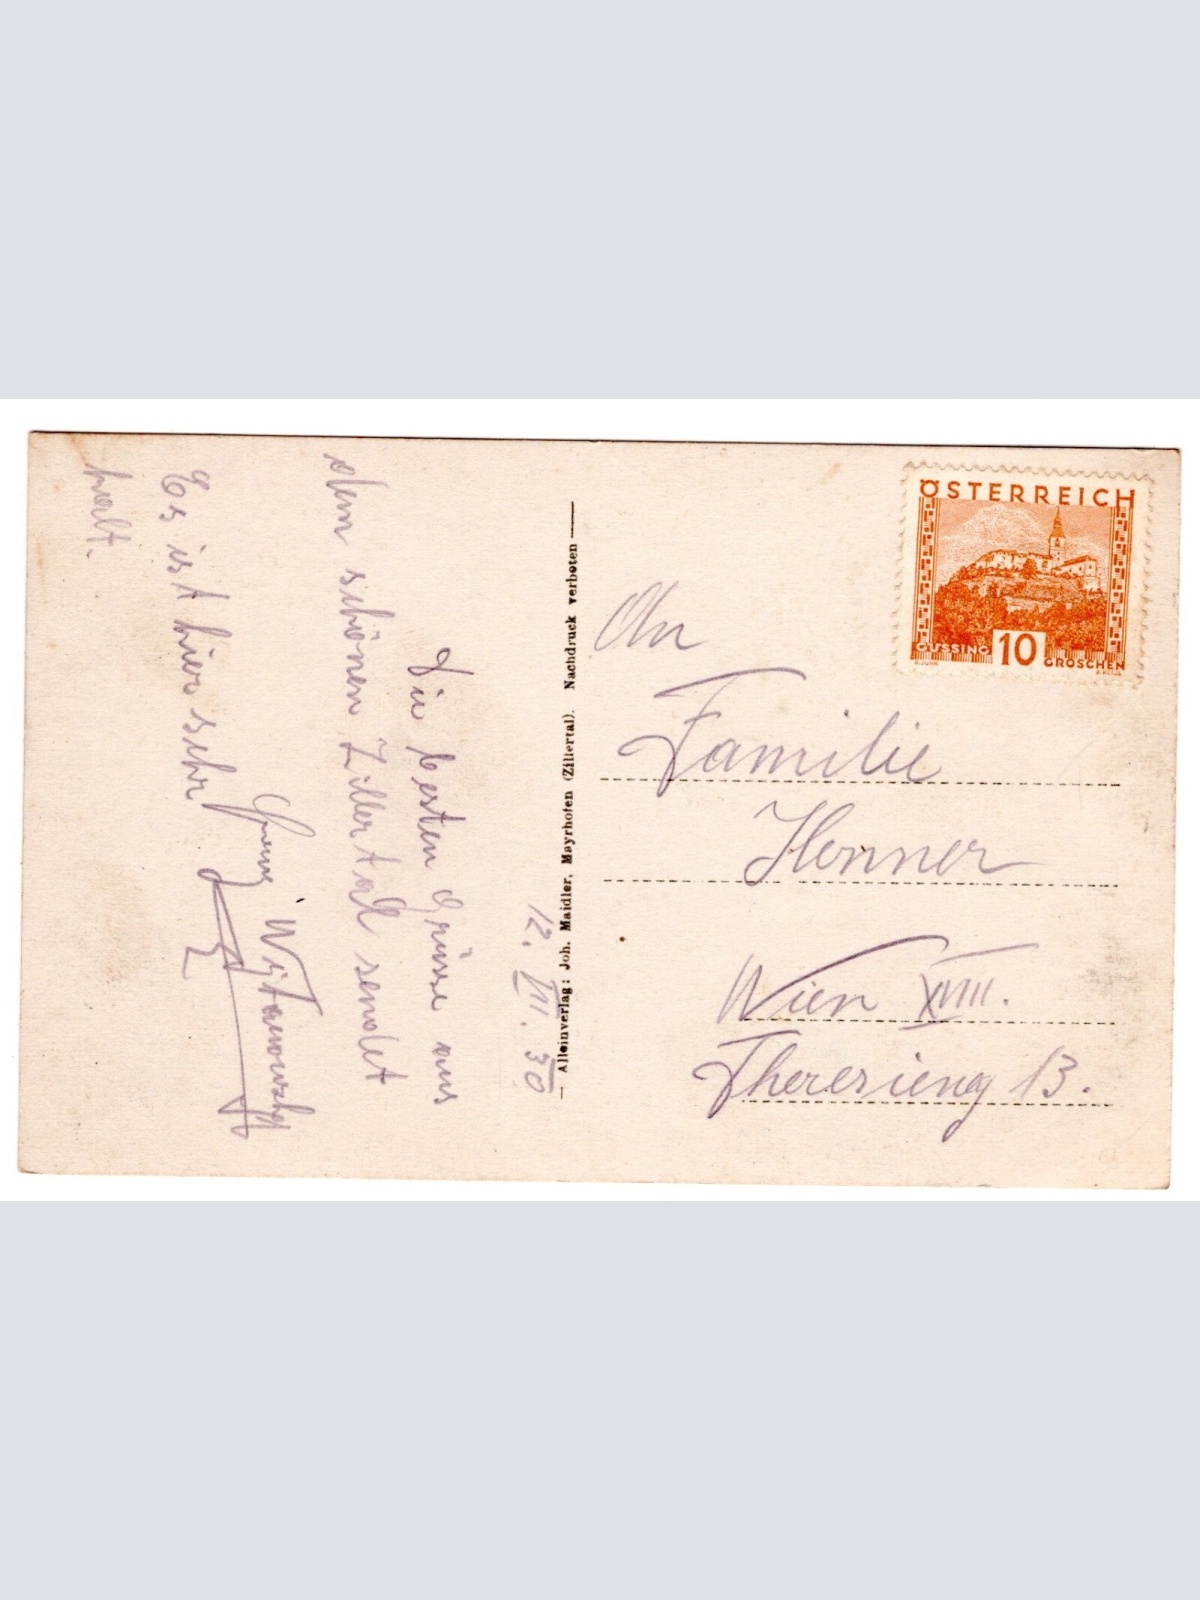 12. VIII. 30
Die besten Grüsse aus
dem schönen Zillertal sendet
Es ist hier sehr
kalt.
Alleinverlag: Joh. Maidler, Mayrhofen (Zillertal). Nachdruck verboten
ÖSTERREICH
GÜSSING 10 GROSCHEN
An
Familie
Honner
Wien XVIII.
Theresieng 13.